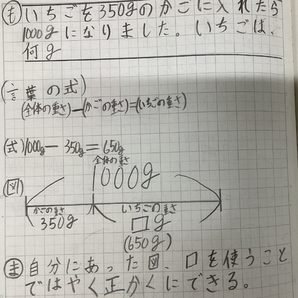 も いちごを350gのかごに入れたら
1000gになりました。いちごは、
何g
(言葉の式)
(全体の重さ)-(かごの重さ)=(いちごの重さ)
(式)1000g-350g=650g
全体の重さ
1000g
(図)
かごの重さ いちごの重さ
350g □g
(650g)
ま 自分にあった図、□を使うこと
ではやく正かくにできる。